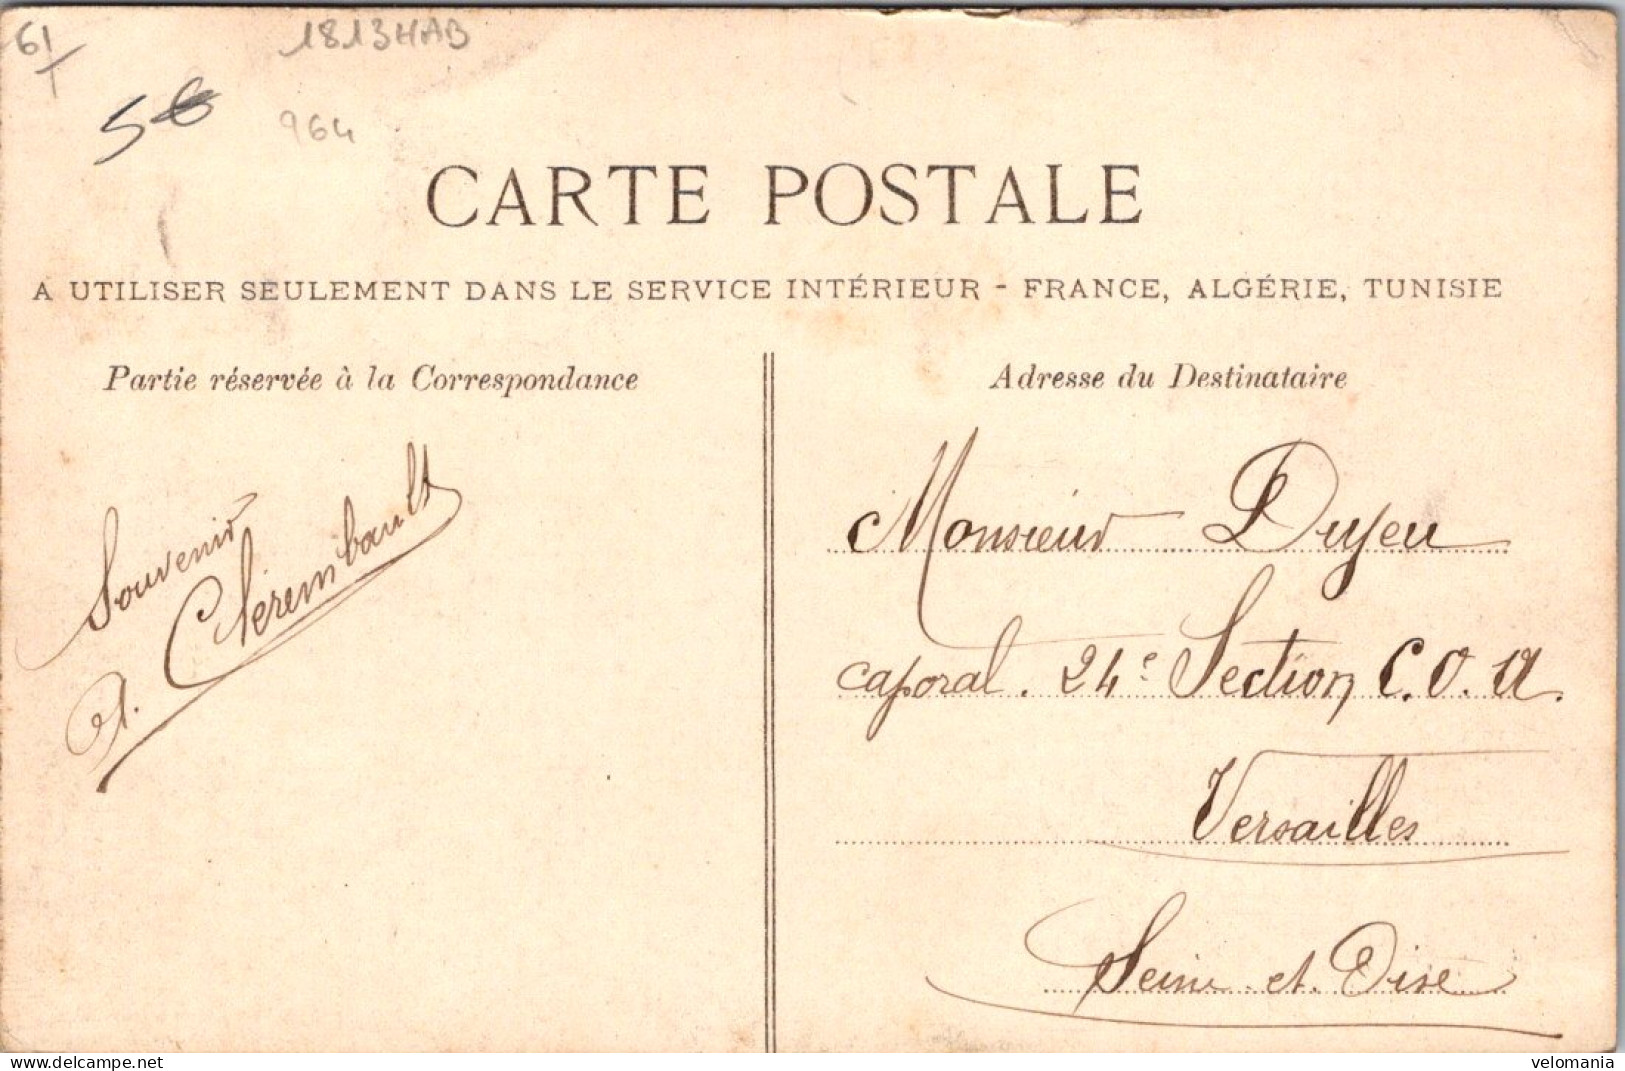 61
1813HAB
5€
964
CARTE POSTALE
A UTILISER SEULEMENT DANS LE SERVICE INTÉRIEUR - FRANCE, ALGÉRIE, TUNISIE
Partie réservée à la Correspondance
Souvenir
A. Clérembault
Adresse du Destinataire
Monsieur Dujeu
caporal. 24e Section C.O.A.
Versailles
Seine et Oise
https://www.delcampe.net
velomania